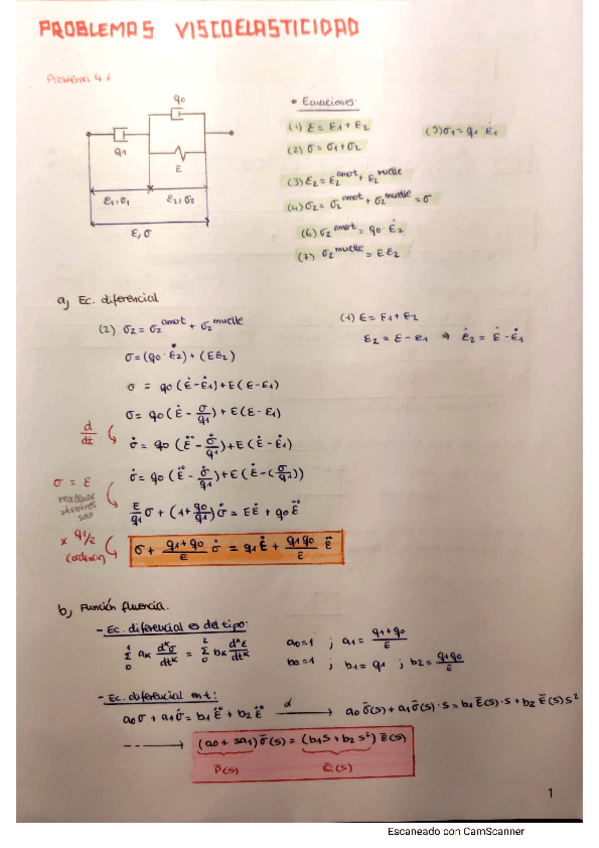 PROBLEMAS VISCOELASTICIDAD
Problema 4.1
q0
q1
E
ε1,σ1
ε2,σ2
ε,σ
• Ecuaciones:
(1) ε = ε1 + ε2
(5) σ1 = q1 · ε̇1
(2) σ = σ1 + σ2
(3) ε2 = ε2^amort + ε2^muelle
(4) σ2 = σ2^amort + σ2^muelle = σ
(6) σ2^amort = q0 · ε̇2
(7) σ2^muelle = E ε2
a) Ec. diferencial
(2) σ2 = σ2^amort + σ2^muelle
(1) ε = ε1 + ε2
ε2 = ε - ε1 ⇒ ε̇2 = ε̇ - ε̇1
σ = (q0 · ε̇2) + (Eε2)
σ = q0 (ε̇ - ε̇1) + E (ε - ε1)
σ = q0 (ε̇ - σ/q1) + E (ε - ε1)
d/dt
σ̇ = q0 (ε̈ - σ̇/q1) + E (ε̇ - ε̇1)
σ̇ = q0 (ε̈ - σ̇/q1) + E (ε̇ - (σ/q1))
σ = ε
E/q1 σ + (1 + q0/q1) σ̇ = E ε̇ + q0 ε̈
x q1/E
(ordenar)
σ + (q1+q0)/E σ̇ = q1 ε̇ + (q1q0)/E ε̈
b) Función fluencia.
- Ec. diferencial es del tipo:
Σ₀¹ ak d^kσ/dt^k = Σ₀² bk d^kε/dt^k
a0 = 1 ; a1 = (q1+q0)/E
b0 = 1 ; b1 = q1 ; b2 = (q1q0)/E
- Ec. diferencial en t:
a0 σ + a1 σ̇ = b1 ε̇ + b2 ε̈ → a0 σ̄(s) + a1 σ̄(s) · s = b1 ε̄(s) · s + b2 ε̄(s) s²
----→ (a0 + sa1) σ̄(s) = (b1s + b2 s²) ε̄(s)
P̄(s)
Q̄(s)
1
Escaneado con CamScanner